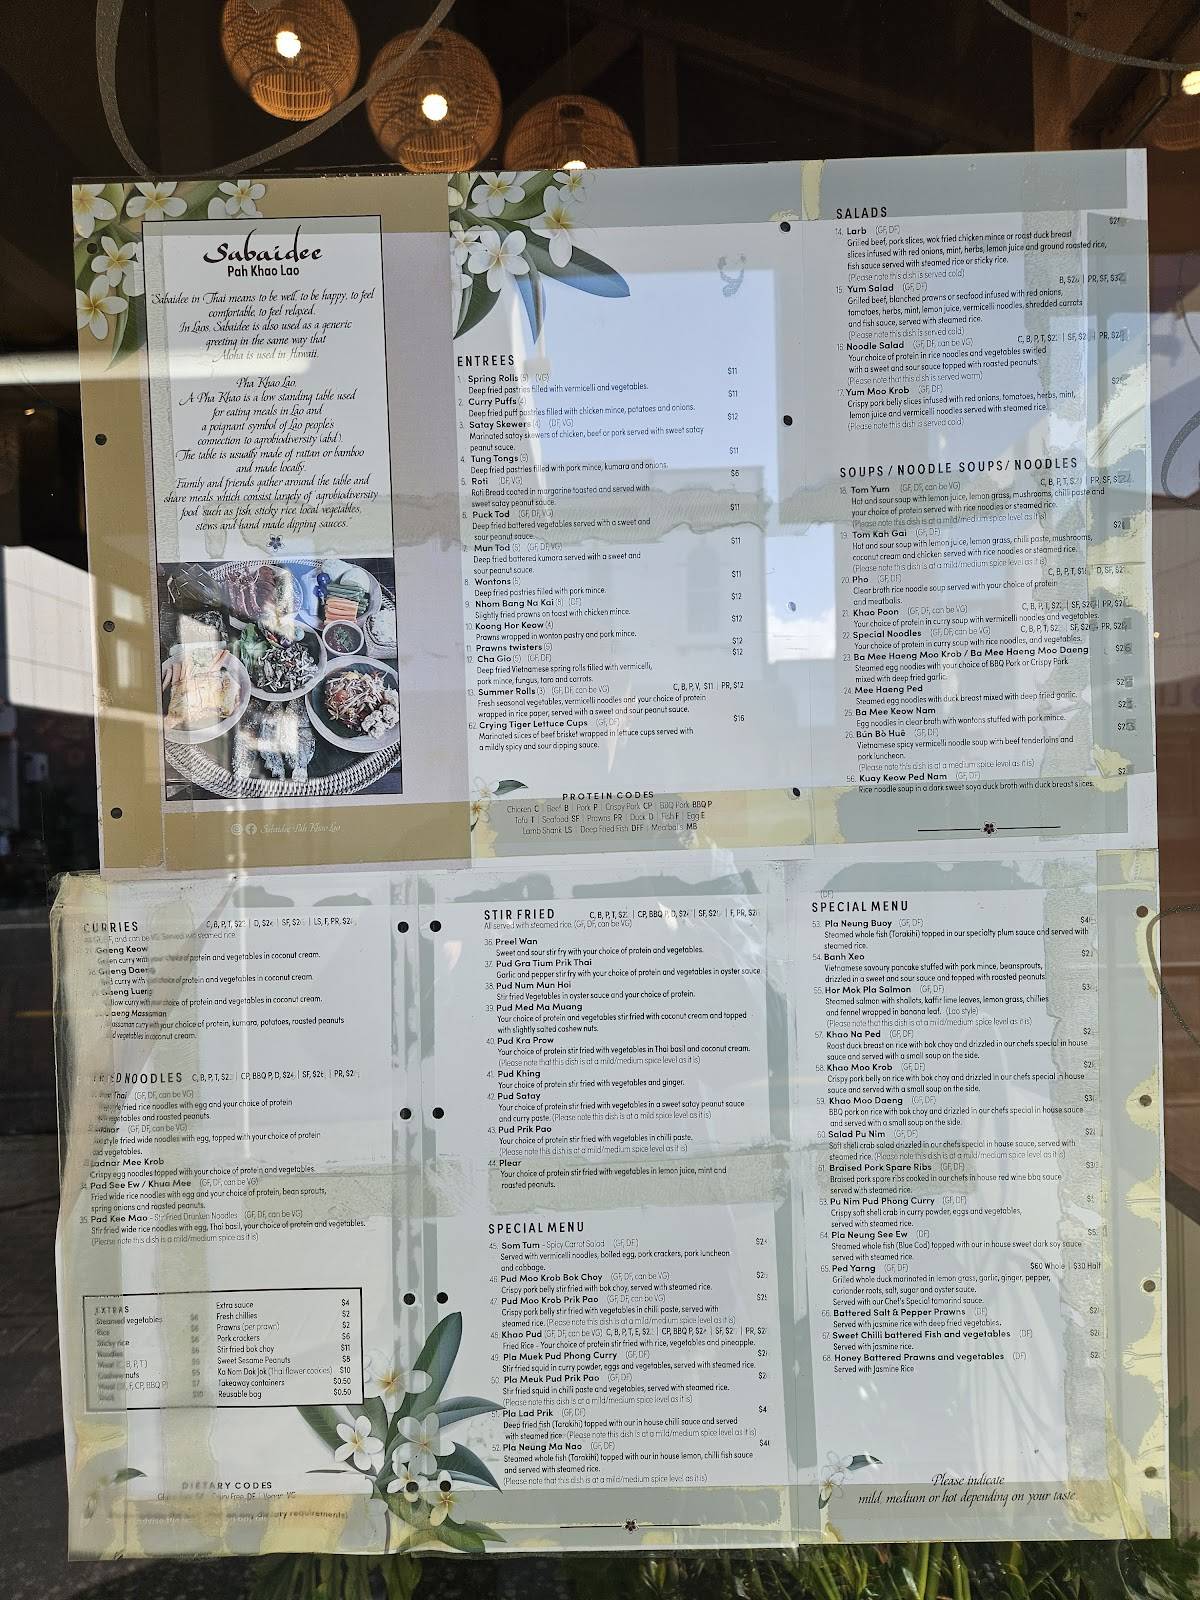 Sabaidee
Pah Khao Lao
"Sabaidee in Thai means to be well, to be happy, to feel
comfortable, to feel relaxed.
In Laos, Sabaidee is also used as a generic
greeting in the same way that
Aloha is used in Hawaii.
Pha Khao Lao,
A Pha Khao is a low standing table used
for eating meals in Lao and
a poignant symbol of Lao people's
connection to agrobiodiversity (abd).
The table is usually made of rattan or bamboo
and made locally.
Family and friends gather around the table and
share meals which consist largely of 'agrobiodiversity
food' such as fish, sticky rice, local vegetables,
stews and hand made dipping sauces."
Sabaidee Pah Khao Lao
ENTREES
1. Spring Rolls(5) (VG) $11
Deep fried pastries filled with vermicelli and vegetables.
2. Curry Puffs(4) $11
Deep fried puff pastries filled with chicken mince, potatoes and onions.
3. Satay Skewers(4) (DF, VG) $12
Marinated satay skewers of chicken, beef or pork served with sweet satay
peanut sauce.
4. Tung Tongs(5) $11
Deep fried pastries filled with pork mince, kumara and onions.
5. Roti (DF, VG) $6
Roti Bread coated in margarine toasted and served with
sweet satay peanut sauce.
6. Puck Tod (GF, DF, VG) $11
Deep fried battered vegetables served with a sweet and
sour peanut sauce.
7. Mun Tod (5) (GF, DF, VG) $11
Deep fried battered kumara served with a sweet and
sour peanut sauce.
8. Wontons(5) $11
Deep fried pastries filled with pork mince.
9. Nhom Bang Na Kai(8) (DF) $12
Slightly fried prawns on toast with chicken mince.
10. Koong Hor Keow(4) $12
Prawns wrapped in wonton pastry and pork mince.
11. Prawns twisters(5) $12
12. Cha Gio(5) (GF, DF) $12
Deep fried Vietnamese spring rolls filled with vermicelli,
pork mince, fungus, taro and carrots.
13. Summer Rolls(3) (GF, DF, can be VG) C, B, P, V, $11 | PR, $12
Fresh seasonal vegetables, vermicelli noodles and your choice of protein
wrapped in rice paper, served with a sweet and sour peanut sauce.
62. Crying Tiger Lettuce Cups (GF, DF) $16
Marinated slices of beef brisket wrapped in lettuce cups served with
a mildly spicy and sour dipping sauce.
PROTEIN CODES
Chicken C | Beef B | Pork P | Crispy Pork CP | BBQ Pork BBQ P
Tofu T | Seafood SF | Prawns PR | Duck D | Fish F | Egg E
Lamb Shank LS | Deep Fried Fish DFF | Meatballs MB
SALADS
14. Larb (GF, DF)
Grilled beef, pork slices, wok fried chicken mince or roast duck breast
slices infused with red onions, mint, herbs, lemon juice and ground roasted rice,
fish sauce served with steamed rice or sticky rice.
(Please note this dish is served cold)
15. Yum Salad (GF, DF)
Grilled beef, blanched prawns or seafood infused with red onions,
tomatoes, herbs, mint, lemon juice, vermicelli noodles, shredded carrots
and fish sauce, served with steamed rice.
(Please note this dish is served cold)
16. Noodle Salad (GF, DF, can be VG)
Your choice of protein in rice noodles and vegetables swirled
with a sweet and sour sauce topped with roasted peanuts.
(Please note that this dish is served warm)
17. Yum Moo Krob (GF, DF)
Crispy pork belly slices infused with red onions, tomatoes, herbs, mint,
lemon juice and vermicelli noodles served with steamed rice.
(Please note this dish is served cold)
SOUPS / NOODLE SOUPS / NOODLES
18. Tom Yum (GF, DF, can be VG)
Hot and sour soup with lemon juice, lemon grass, mushrooms, chilli paste and
your choice of protein served with rice noodles or steamed rice.
(Please note this dish is at a mild/medium spice level as it is)
19. Tom Kah Gai (GF, DF)
Hot and sour soup with lemon juice, lemon grass, chilli paste, mushrooms,
coconut cream and chicken served with rice noodles or steamed rice.
(Please note this dish is at a mild/medium spice level as it is)
20. Pho (GF, DF)
Clear broth rice noodle soup served with your choice of protein
and meatballs.
21. Khao Poon (GF, DF, can be VG)
Your choice of protein in curry soup with vermicelli noodles and vegetables.
22. Special Noodles (GF, DF, can be VG)
Your choice of protein in curry soup with rice noodles, and vegetables.
23. Ba Mee Haeng Moo Krob / Ba Mee Haeng Moo Daeng
Steamed egg noodles with your choice of BBQ Pork or Crispy Pork
mixed with deep fried garlic.
24. Mee Haeng Ped
Steamed egg noodles with duck breast mixed with deep fried garlic.
25. Ba Mee Keow Nam
Egg noodles in clear broth with wontons stuffed with pork mince.
26. Bún Bò Huê (GF, DF)
Vietnamese spicy vermicelli noodle soup with beef tenderloins and
pork luncheon.
(Please note this dish is at a medium spice level as it is)
56. Kuay Keow Ped Nam (GF, DF)
Rice noodle soup in a dark sweet soya duck broth with duck breast slices.
CURRIES
Gaeng Keow
curry with your choice of protein and vegetables in coconut cream.
Gaeng Daeng
curry with your choice of protein and vegetables in coconut cream.
Gaeng Luerg
curry with your choice of protein and vegetables in coconut cream.
Gaeng Massaman
curry with your choice of protein, kumara, potatoes, roasted peanuts
vegetables in coconut cream.
FRIED NOODLES
Thai (GF, DF, can be VG)
fried rice noodles with egg and your choice of protein
vegetables and roasted peanuts.
Ladnar (GF, DF, can be VG)
style fried wide noodles with egg, topped with your choice of protein
and vegetables.
Ladnar Mee Krob
Crispy egg noodles topped with your choice of protein and vegetables.
34. Pad See Ew / Khua Mee (GF, DF, can be VG)
Fried wide rice noodles with egg and your choice of protein, bean sprouts,
spring onions and roasted peanuts.
35. Pad Kee Mao - Stir Fried Drunken Noodles (GF, DF, can be VG)
Stir fried wide rice noodles with egg, Thai basil, your choice of protein and vegetables.
(Please note this dish is at a mild/medium spice level as it is)
EXTRAS
Steamed vegetables
Rice
Sticky rice
Noodles
Extra sauce $4
Fresh chillies $2
Prawns (per prawn) $2
Pork crackers $6
Stir fried bok choy $11
Sweet Sesame Peanuts $8
Ka Nom Dak Jok (Thai flower cookies) $10
Takeaway containers $0.50
Reusable bag $0.50
DIETARY CODES
STIR FRIED
All served with steamed rice. (GF, DF, can be VG)
36. Preel Wan
Sweet and sour stir fry with your choice of protein and vegetables.
37. Pud Gra Tium Prik Thai
Garlic and pepper stir fry with your choice of protein and vegetables in oyster sauce
38. Pud Num Mun Hoi
Stir fried Vegetables in oyster sauce and your choice of protein.
39. Pud Med Ma Muang
Your choice of protein and vegetables stir fried with coconut cream and topped
with slightly salted cashew nuts.
40. Pud Kra Prow
Your choice of protein stir fried with vegetables in Thai basil and coconut cream.
(Please note that this dish is at a mild/medium spice level as it is)
41. Pud Khing
Your choice of protein stir fried with vegetables and ginger.
42. Pud Satay
Your choice of protein stir fried with vegetables in a sweet satay peanut sauce
and curry paste. (Please note this dish is at a mild spice level as it is)
43. Pud Prik Pao
Your choice of protein stir fried with vegetables in chilli paste.
(Please note this dish is at a mild/medium spice level as it is)
44. Plear
Your choice of protein stir fried with vegetables in lemon juice, mint and
roasted peanuts.
SPECIAL MENU
45. Som Tum - Spicy Carrot Salad (GF, DF)
Served with vermicelli noodles, boiled egg, pork crackers, pork luncheon
and cabbage.
46. Pud Moo Krob Bok Choy (GF, DF, can be VG)
Crispy pork belly stir fried with bok choy, served with steamed rice.
47. Pud Moo Krob Prik Pao (GF, DF, can be VG)
Crispy pork belly stir fried with vegetables in chilli paste, served with
steamed rice. (Please note this dish is at a mild/medium spice level as it is)
48. Khao Pud (GF, DF, can be VG)
Fried Rice - Your choice of protein stir fried with rice, vegetables and pineapple.
49. Pla Muek Pud Phong Curry (GF, DF)
Stir fried squid in curry powder, eggs and vegetables, served with steamed rice.
50. Pla Meuk Pud Prik Pao (GF, DF)
Stir fried squid in chilli paste and vegetables, served with steamed rice.
(Please note this dish is at a mild/medium spice level as it is)
51. Pla Lad Prik (GF, DF)
Deep fried fish (Tarakihi) topped with our in house chilli sauce and served
with steamed rice. (Please note this dish is at a mild/medium spice level as it is)
52. Pla Neung Ma Nao (GF, DF)
Steamed whole fish (Tarakihi) topped with our in house lemon, chilli fish sauce
and served with steamed rice.
(Please note that this dish is at a mild/medium spice level as it is)
(DF)
SPECIAL MENU
53. Pla Neung Buoy (GF, DF)
Steamed whole fish (Tarakihi) topped in our specialty plum sauce and served with
steamed rice.
54. Banh Xeo
Vietnamese savoury pancake stuffed with pork mince, beansprouts,
drizzled in a sweet and sour sauce and topped with roasted peanuts.
55. Hor Mok Pla Salmon (GF, DF)
Steamed salmon with shallots, kaffir lime leaves, lemon grass, chillies
and fennel wrapped in banana leaf. (Lao style)
(Please note that this dish is at a mild/medium spice level as it is)
57. Khao Na Ped (GF, DF)
Roast duck breast on rice with bok choy and drizzled in our chefs special in house
sauce and served with a small soup on the side.
58. Khao Moo Krob (GF, DF)
Crispy pork belly on rice with bok choy and drizzled in our chefs special in house
sauce and served with a small soup on the side.
59. Khao Moo Daeng (GF, DF)
BBQ pork on rice with bok choy and drizzled in our chefs special in house sauce
and served with a small soup on the side.
60. Salad Pu Nim (GF, DF)
Soft shell crab salad drizzled in our chefs special in house sauce, served with
steamed rice. (Please note this dish is at a mild/medium spice level as it is)
61. Braised Pork Spare Ribs (GF, DF)
Braised pork spare ribs cooked in our chefs in house red wine bbq sauce
served with steamed rice.
63. Pu Nim Pud Phong Curry (GF, DF)
Crispy soft shell crab in curry powder, eggs and vegetables,
served with steamed rice.
64. Pla Neung See Ew (DF)
Steamed whole fish (Blue Cod) topped with our in house sweet dark soy sauce
served with steamed rice.
65. Ped Yarng (GF, DF) $60 Whole | $30 Half
Grilled whole duck marinated in lemon grass, garlic, ginger, pepper,
coriander roots, salt, sugar and oyster sauce.
Served with our Chef's Special tamarind sauce.
66. Battered Salt & Pepper Prawns (DF)
Served with jasmine rice with deep fried vegetables.
67. Sweet Chilli battered Fish and vegetables (DF)
Served with jasmine rice.
68. Honey Battered Prawns and vegetables (DF)
Served with Jasmine Rice
Please indicate
mild, medium or hot depending on your taste.